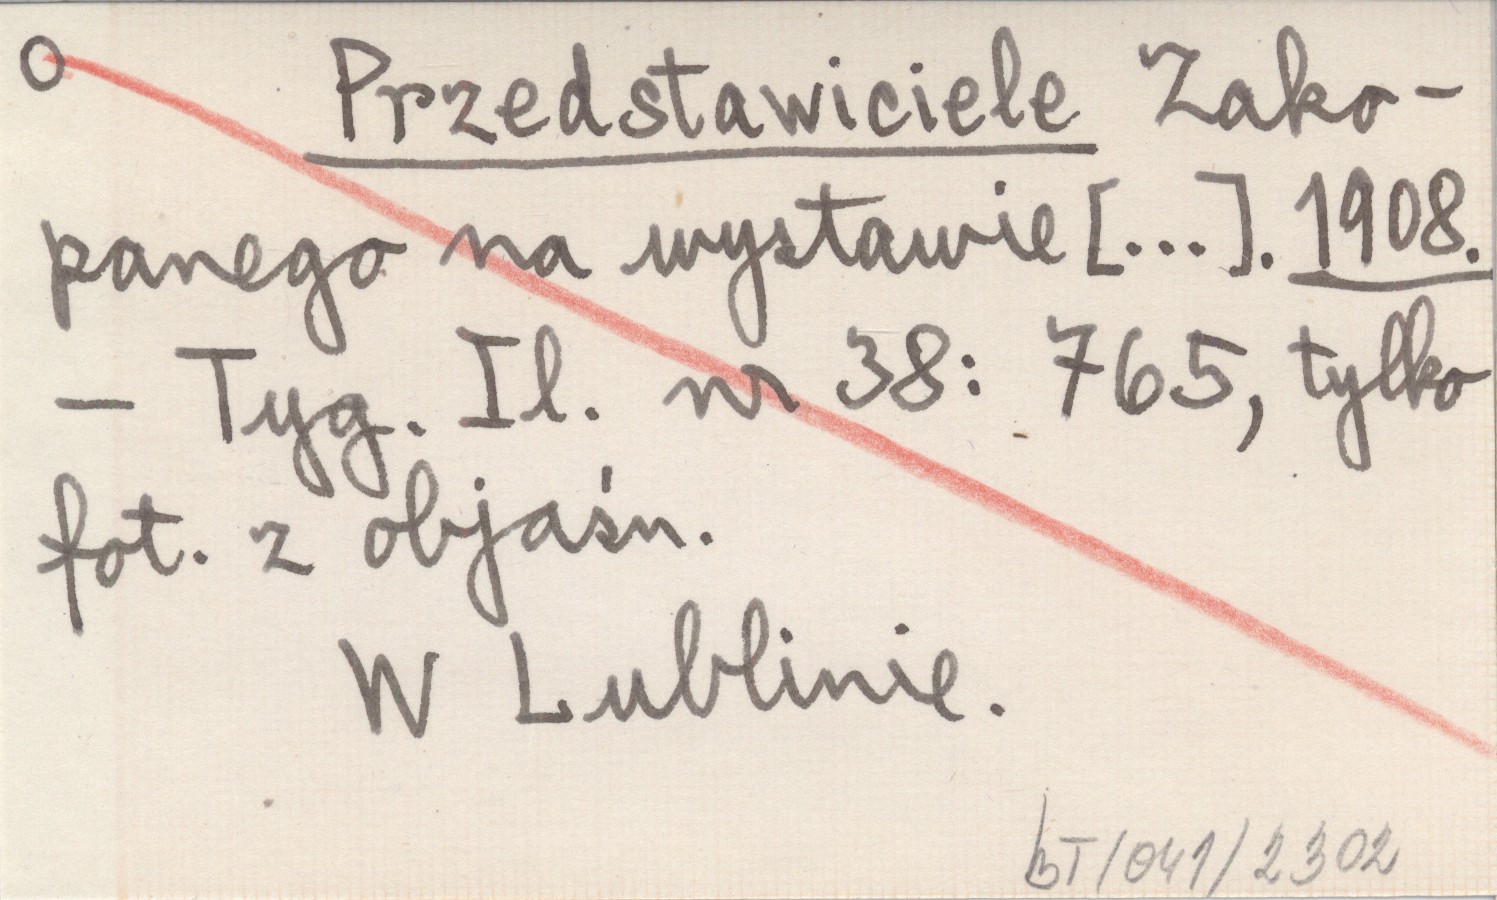 O Przedstawiciele Zako-
panego na wystawie [...]. 1908.
– Tyg. Il. nr 38: 765, tylko
fot. z objaśn.
W Lublinie.
bT/041/2302